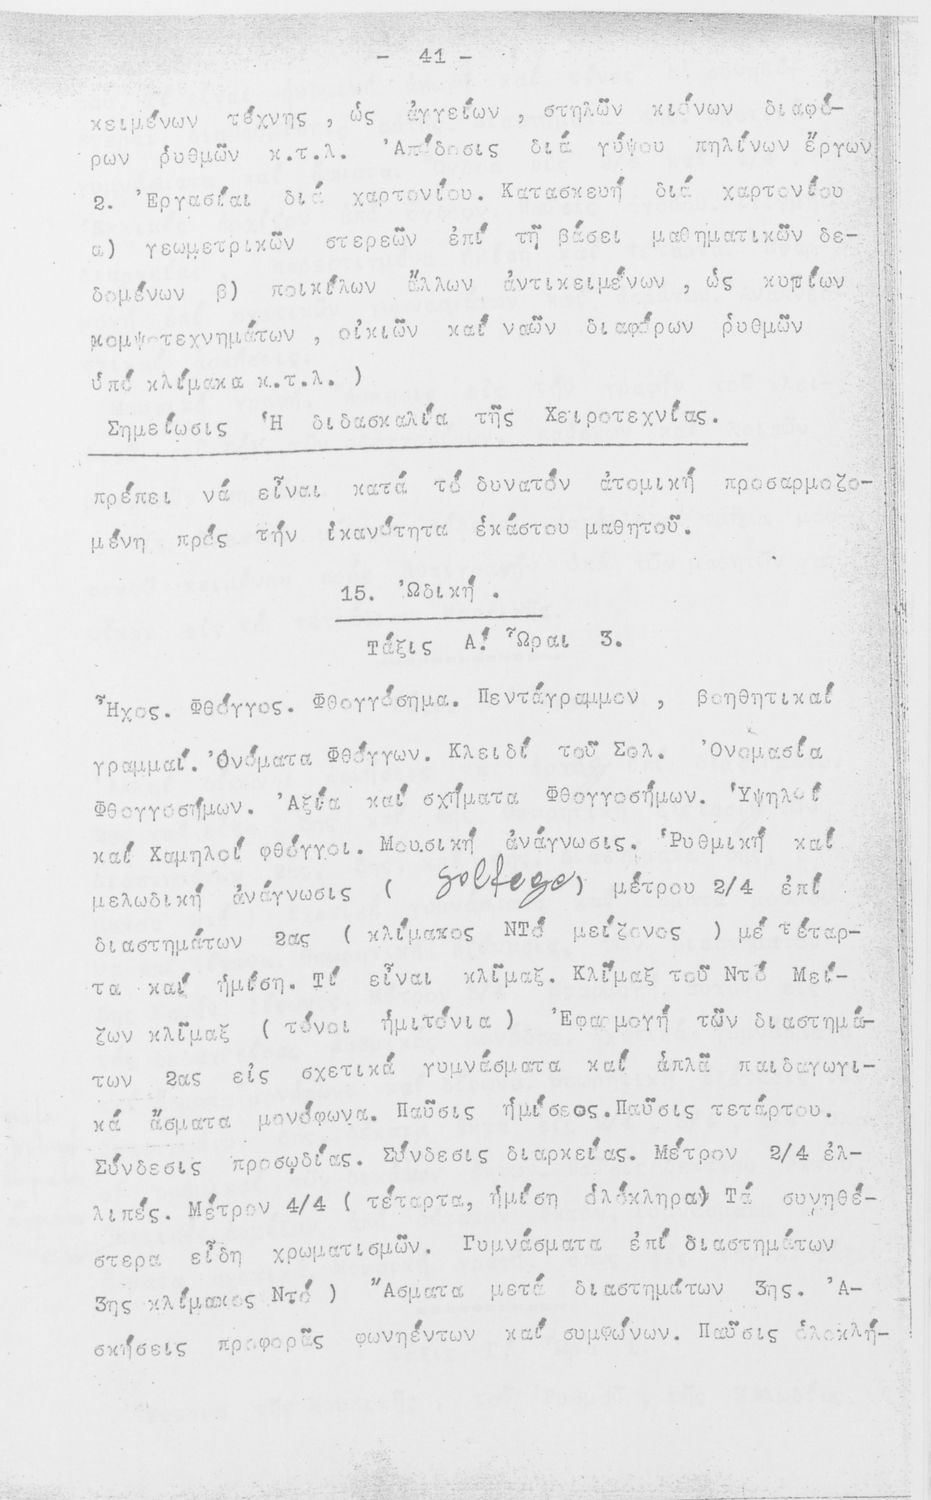 - 41 -
κειμένων τέχνης , ὡς ἀγγείων , στηλῶν κιόνων διαφό-
ρων ῥυθμῶν κ.τ.λ. Ἀπόδοσις διά γύψου πηλίνων ἔργων
2. Ἐργασίαι διά χαρτονίου. Κατασκευή διά χαρτονίου
α) γεωμετρικῶν στερεῶν ἐπί τῇ βάσει μαθηματικῶν δε-
δομένων β) ποικίλων ἄλλων ἀντικειμένων , ὡς κυτίων
κομψοτεχνημάτων , οἰκιῶν καί ναῶν διαφόρων ῥυθμῶν
ὑπό κλίμακα κ.τ.λ. )
Σημείωσις Ἡ διδασκαλία τῆς Χειροτεχνίας.
πρέπει νά εἶναι κατά τό δυνατόν ἀτομική προσαρμοζο-
μένη πρός τήν ἱκανότητα ἑκάστου μαθητοῦ.
15. Ὠδική .
Τάξις Α! Ὧραι 3.
Ἦχος. Φθόγγος. Φθογγόσημα. Πεντάγραμμον , βοηθητικαί
γραμμαί. Ὀνόματα Φθόγγων. Κλειδί τοῦ Σολ. Ὀνομασία
Φθογγοσήμων. Ἀξία καί σχήματα Φθογγοσήμων. Ὑψηλοί
καί Χαμηλοί φθόγγοι. Μουσική ἀνάγνωσις. Ῥυθμική καί
μελωδική ἀνάγνωσις ( solfege) μέτρου 2/4 ἐπί
διαστημάτων 2ας ( κλίμακος ΝΤό μείζονος ) μέ τέταρ-
τα καί ἡμίση. Τί εἶναι κλῖμαξ. Κλῖμαξ τοῦ Ντό Μεί-
ζων κλῖμαξ ( τόνοι ἡμιτόνια ) Ἐφαρμογή τῶν διαστημά-
των 2ας εἰς σχετικά γυμνάσματα καί ἁπλᾶ παιδαγωγι-
κά ἄσματα μονόφωνα. Παῦσις ἡμίσεος.Παῦσις τετάρτου.
Σύνδεσις προσῳδίας. Σύνδεσις διαρκείας. Μέτρον 2/4 ἐλ-
λιπές. Μέτρον 4/4 ( τέταρτα, ἡμίση ὁλόκληρα) Τά συνηθέ-
στερα εἴδη χρωματισμῶν. Γυμνάσματα ἐπί διαστημάτων
3ης κλίμακος Ντό ) Ἄσματα μετά διαστημάτων 3ης. Ἀ-
σκήσεις προφορᾶς φωνηέντων καί συμφώνων. Παῦσις ὁλοκλή-